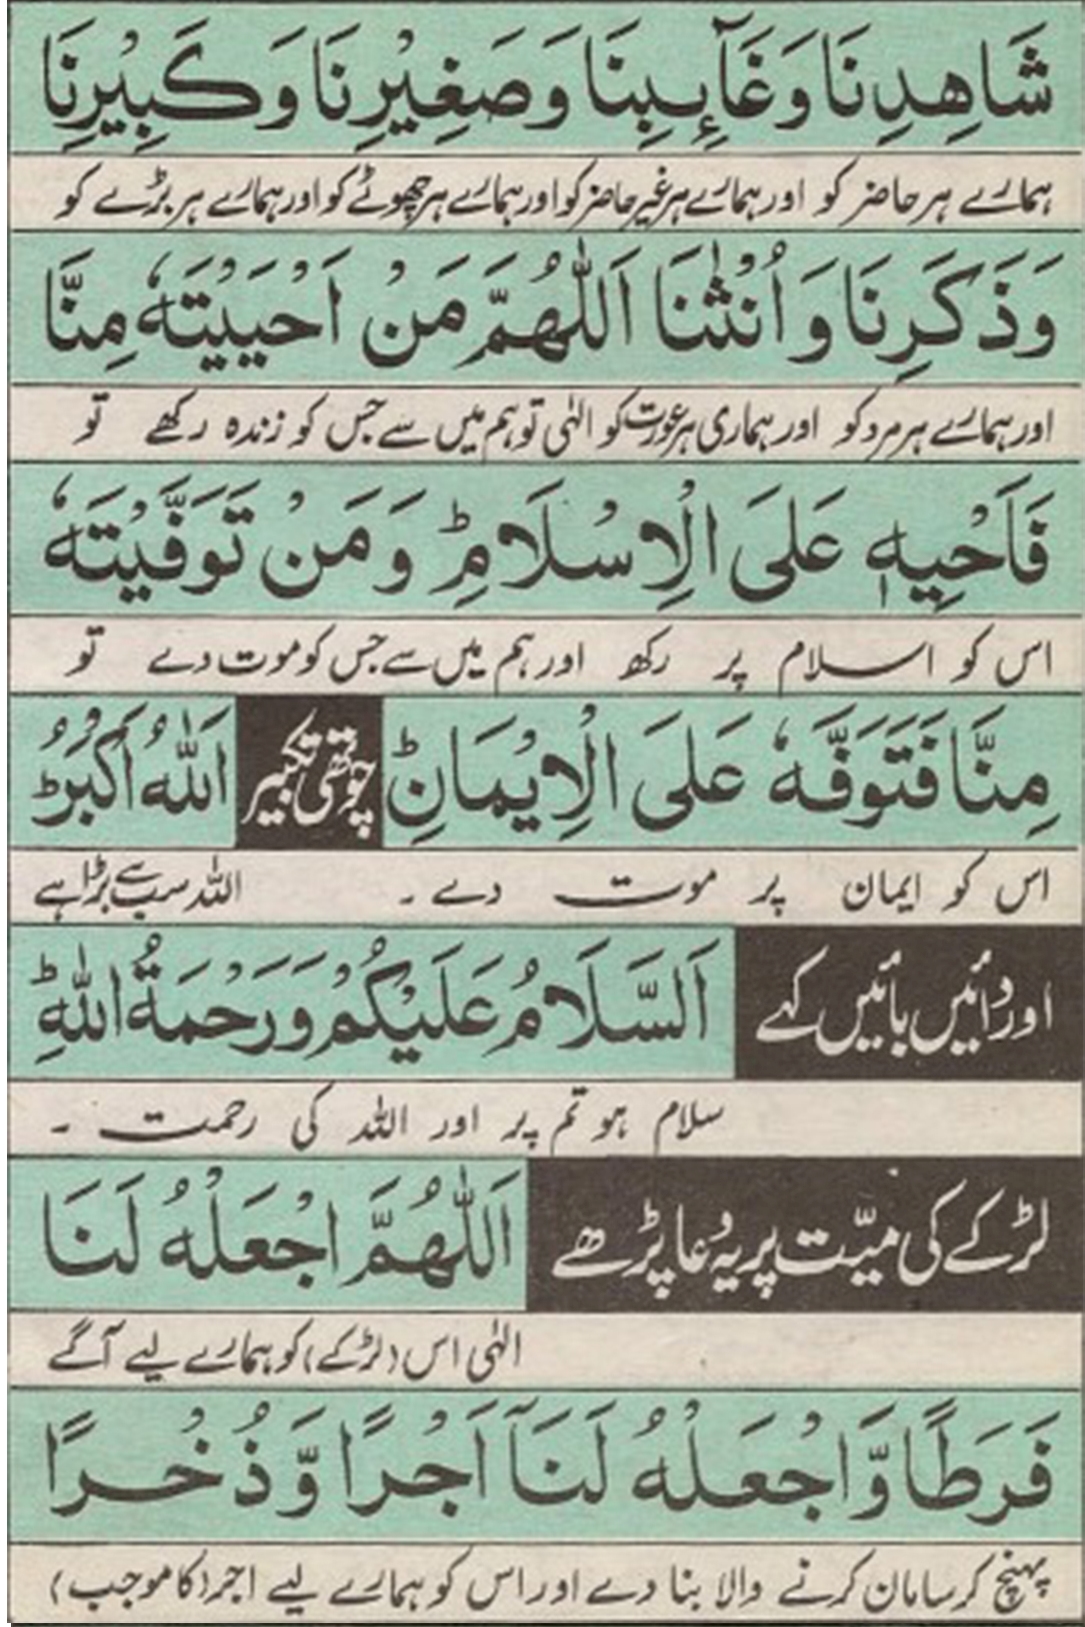 شَاهِدِنَا وَغَآئِبِنَا وَصَغِيْرِنَا وَكَبِيْرِنَا
ہمارے ہر حاضر کو اور ہمارے ہر غیر حاضر کو اور ہمارے ہر چھوٹے کو اور ہمارے ہر بڑے کو
وَذَكَرِنَا وَاُنْثٰنَا اَللّٰهُمَّ مَنْ اَحْيَيْتَهٗ مِنَّا
اور ہمارے ہر مرد کو اور ہماری ہر عورت کو الٰہی تو ہم میں سے جس کو زندہ رکھے تو
فَاَحْيِهٖ عَلَى الْاِسْلَامِؕ وَمَنْ تَوَفَّيْتَهٗ
اس کو اسلام پر رکھ اور ہم میں سے جس کو موت دے تو
مِنَّا فَتَوَفَّهٗ عَلَى الْاِيْمَانِؕ چوتھی تکبیر اَللّٰهُ اَكْبَرُؕ
اس کو ایمان پر موت دے ۔ اللہ سب سے بڑا ہے
اور دائیں بائیں کہے اَلسَّلَامُ عَلَيْكُمْ وَرَحْمَةُ اللّٰهِؕ
سلام ہو تم پر اور اللہ کی رحمت ۔
لڑکے کی میّت پر یہ دُعا پڑھے اَللّٰهُمَّ اجْعَلْهُ لَنَا
الٰہی اس (لڑکے) کو ہمارے لیے آگے
فَرَطًا وَّاجْعَلْهُ لَنَآ اَجْرًا وَّذُخْرًا
پہنچ کر سامان کرنے والا بنا دے اور اس کو ہمارے لیے اجر (کا موجب)